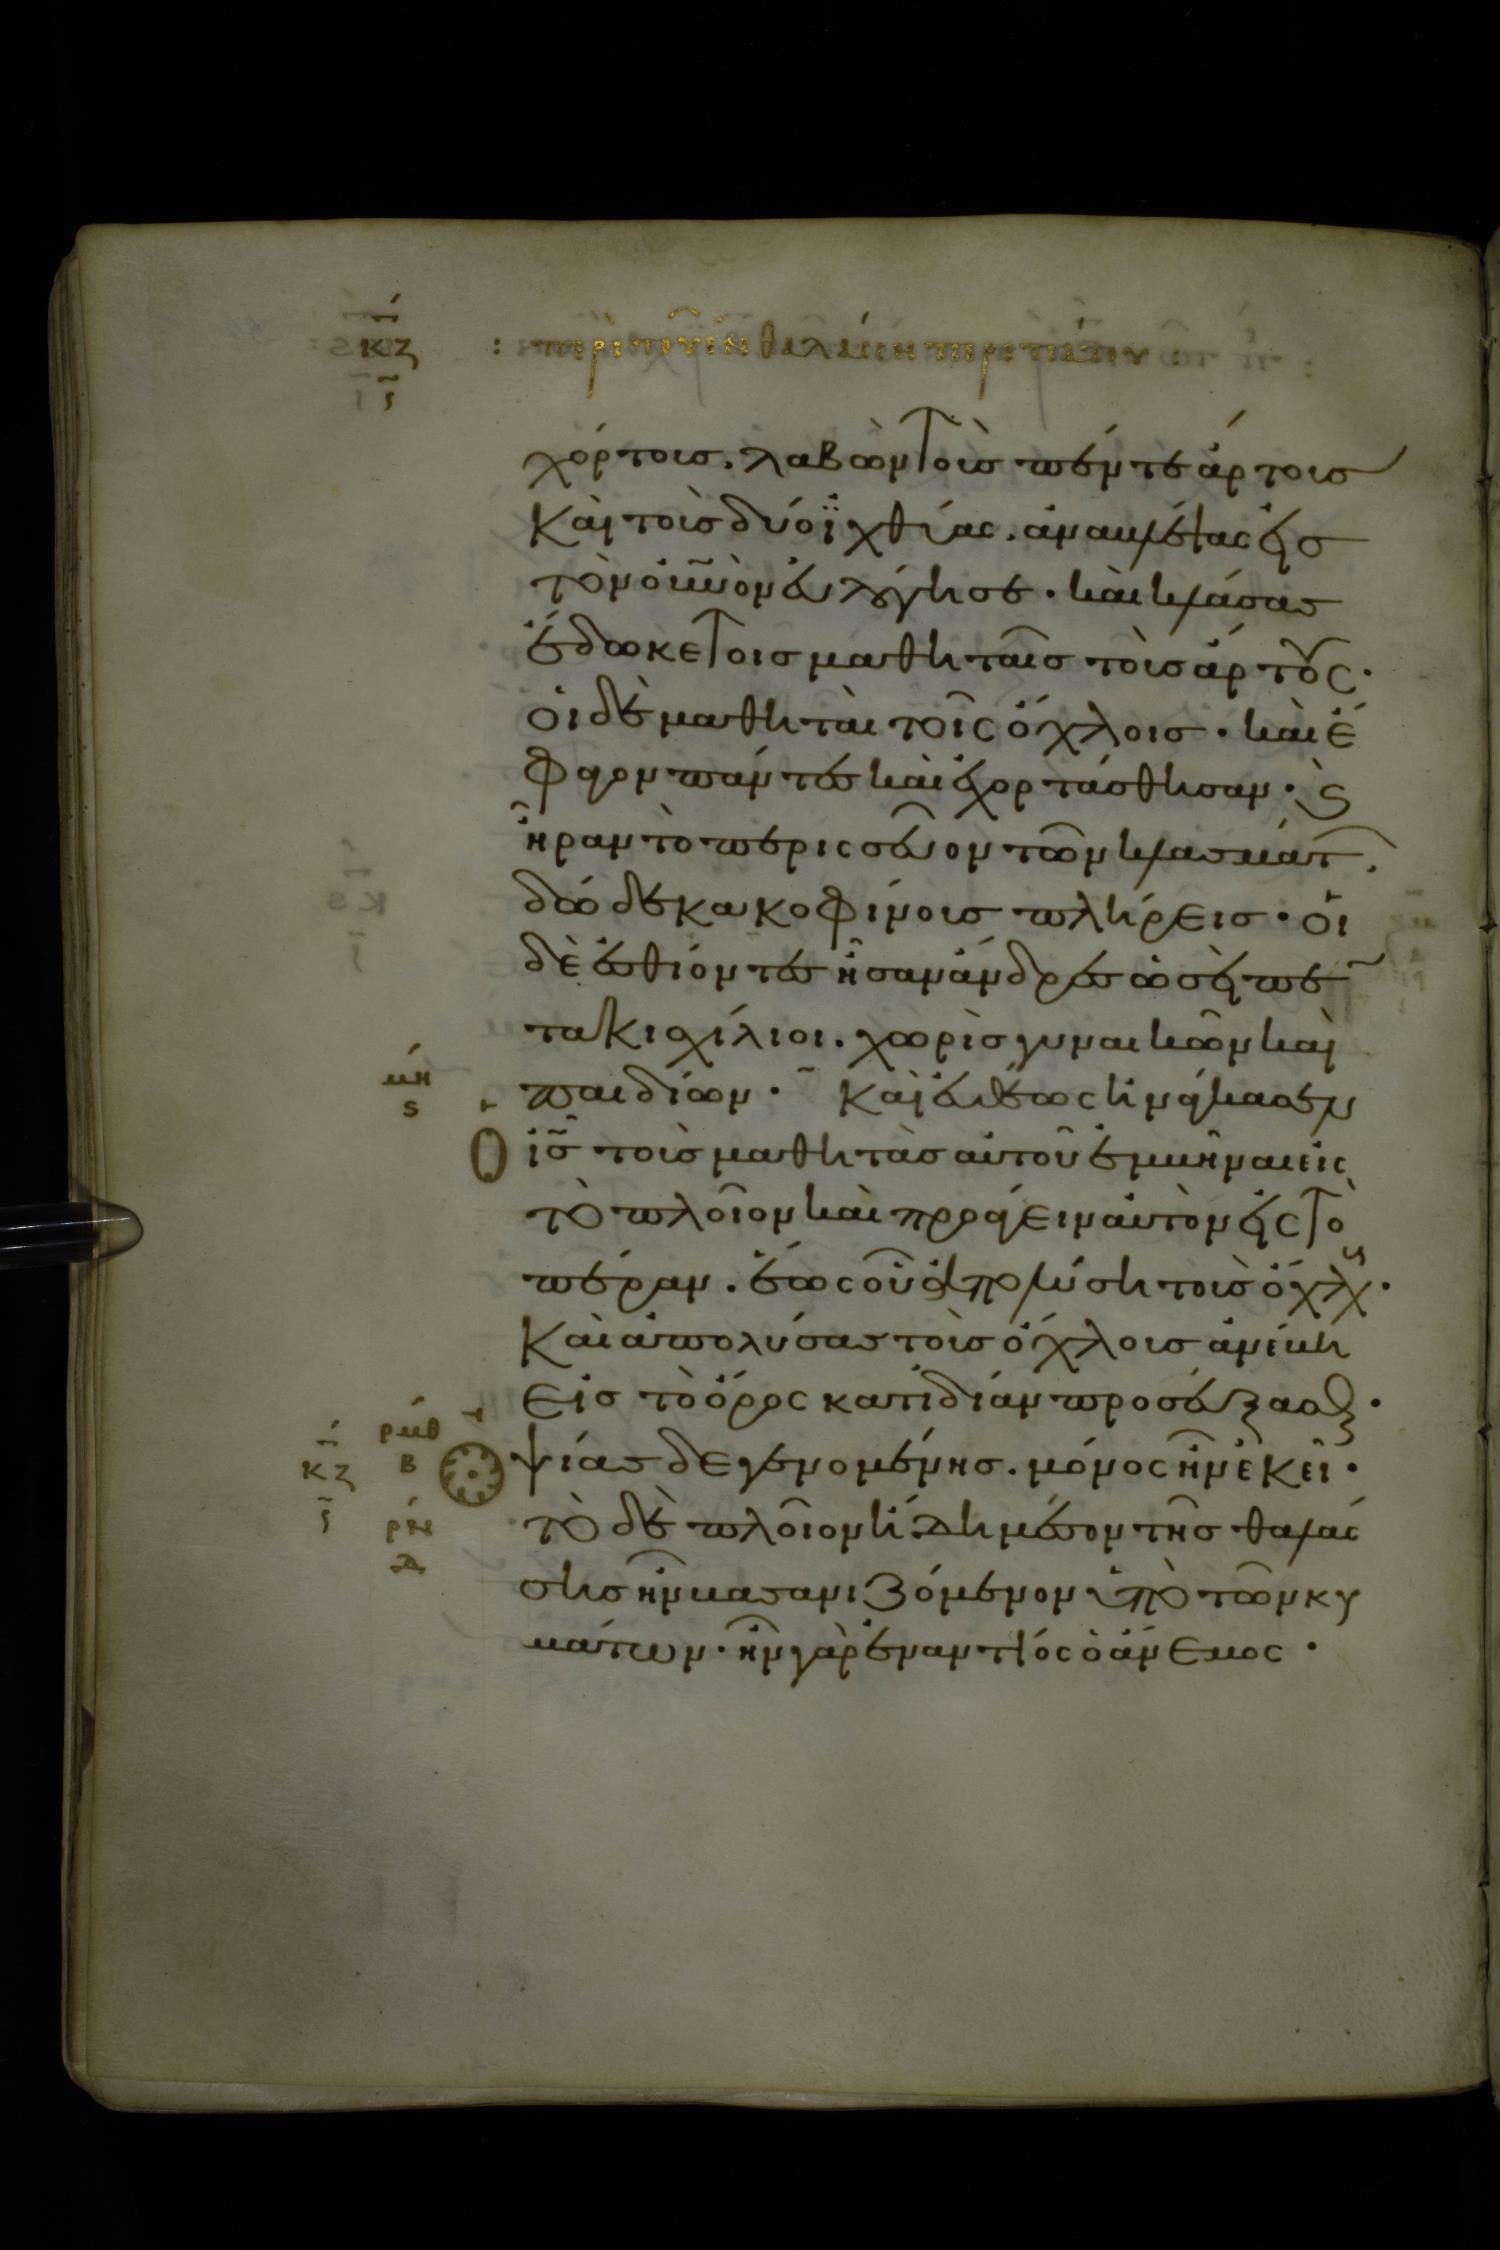 κζ
ι
: περὶ τοῦ ἐν θαλάσσῃ περιπάτου
χόρτους. λαβὼν τοὺς πέντε ἄρτους
καὶ τοὺς δύο ἰχθύας. ἀναβλέψας εἰς
τὸν οὐνὸν εὐλόγησε. καὶ κλάσας
ἔδωκε τοῖς μαθηταῖς τοὺς ἄρτους.
οἱ δὲ μαθηταὶ τοῖς ὄχλοις. καὶ ἔ
φαγον πάντες καὶ ἐχορτάσθησαν. ϗ
ἦραν τὸ περισσεῦον τῶν κλασμάτ.
δώδεκα κοφίνους πλήρεις. οἱ
δὲ ἐσθίοντες ἦσαν ἄνδρες ὡσεὶ πε
τακισχίλιοι. χωρὶς γυναικῶν καὶ
μη
ς
παιδίων. Καὶ εὐθέως ἠνάγκασεν
Ο
ις τοὺς μαθητὰς αὐτοῦ ἐμβῆναι εἰς
τὸ πλοῖον καὶ προάγειν αὐτὸν εἰς τὸ
πέραν. ἕως οὗ ἀπολύσῃ τοὺς ὄχλους.
καὶ ἀπολύσας τοὺς ὄχλους ἀνέβη
εἰς τὸ ὄρος κατιδίαν προσεύξασθ.
ρμθ
β
κζ
ι
Ο
ψίας δὲ γενομένης. μόνος ἦν ἐκεῖ.
ρν
δ
τὸ δὲ πλοῖον ἤδη μέσον τῆς θαλάσ
σης ἦν βασανιζόμενον ὑπὸ τῶν κυ
μάτων. ἦν γὰρ ἐναντίος ὁ ἄνεμος.